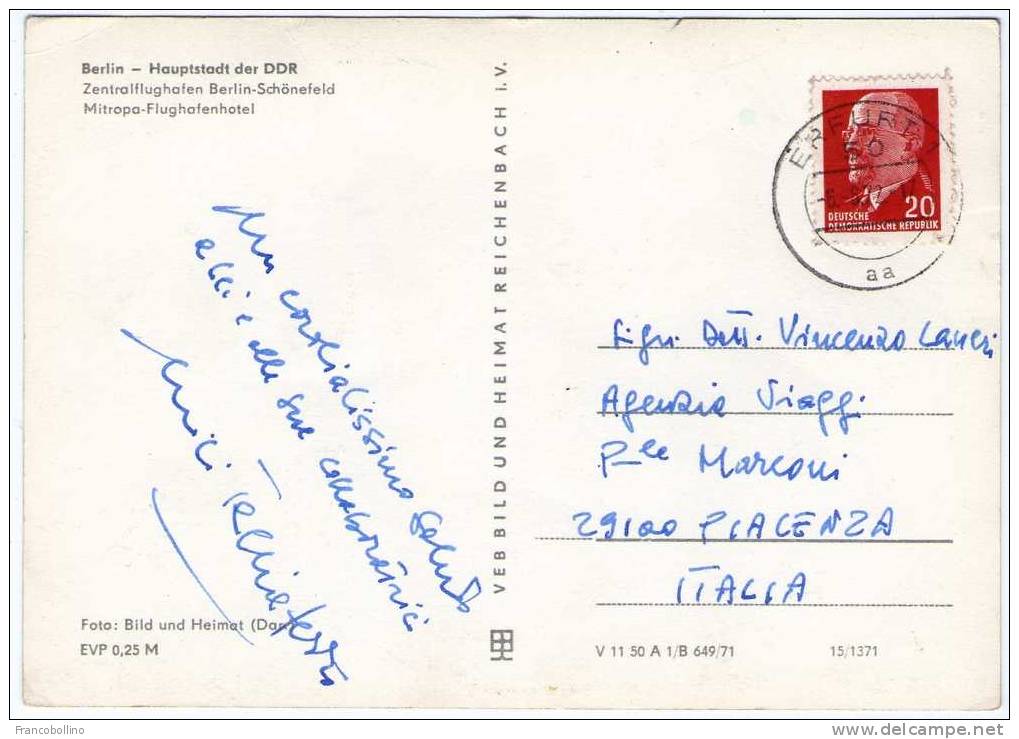 Berlin – Hauptstadt der DDR
Zentralflughafen Berlin-Schönefeld
Mitropa-Flughafenhotel
Un cordialissimo saluto
a lei e alle sue collaboratrici
VEB BILD UND HEIMAT REICHENBACH i. V.
ERFURT 1
50
aa
20
DEUTSCHE
DEMOKRATISCHE REPUBLIK
Sign. Dott. Vincenzo
Agenzia Viaggi
P.le Marconi
29100 PIACENZA
ITALIA
Foto: Bild und Heimat
EVP 0,25 M
V 11 50 A 1/B 649/71
15/1371
Francobollino
www.delcampe.net